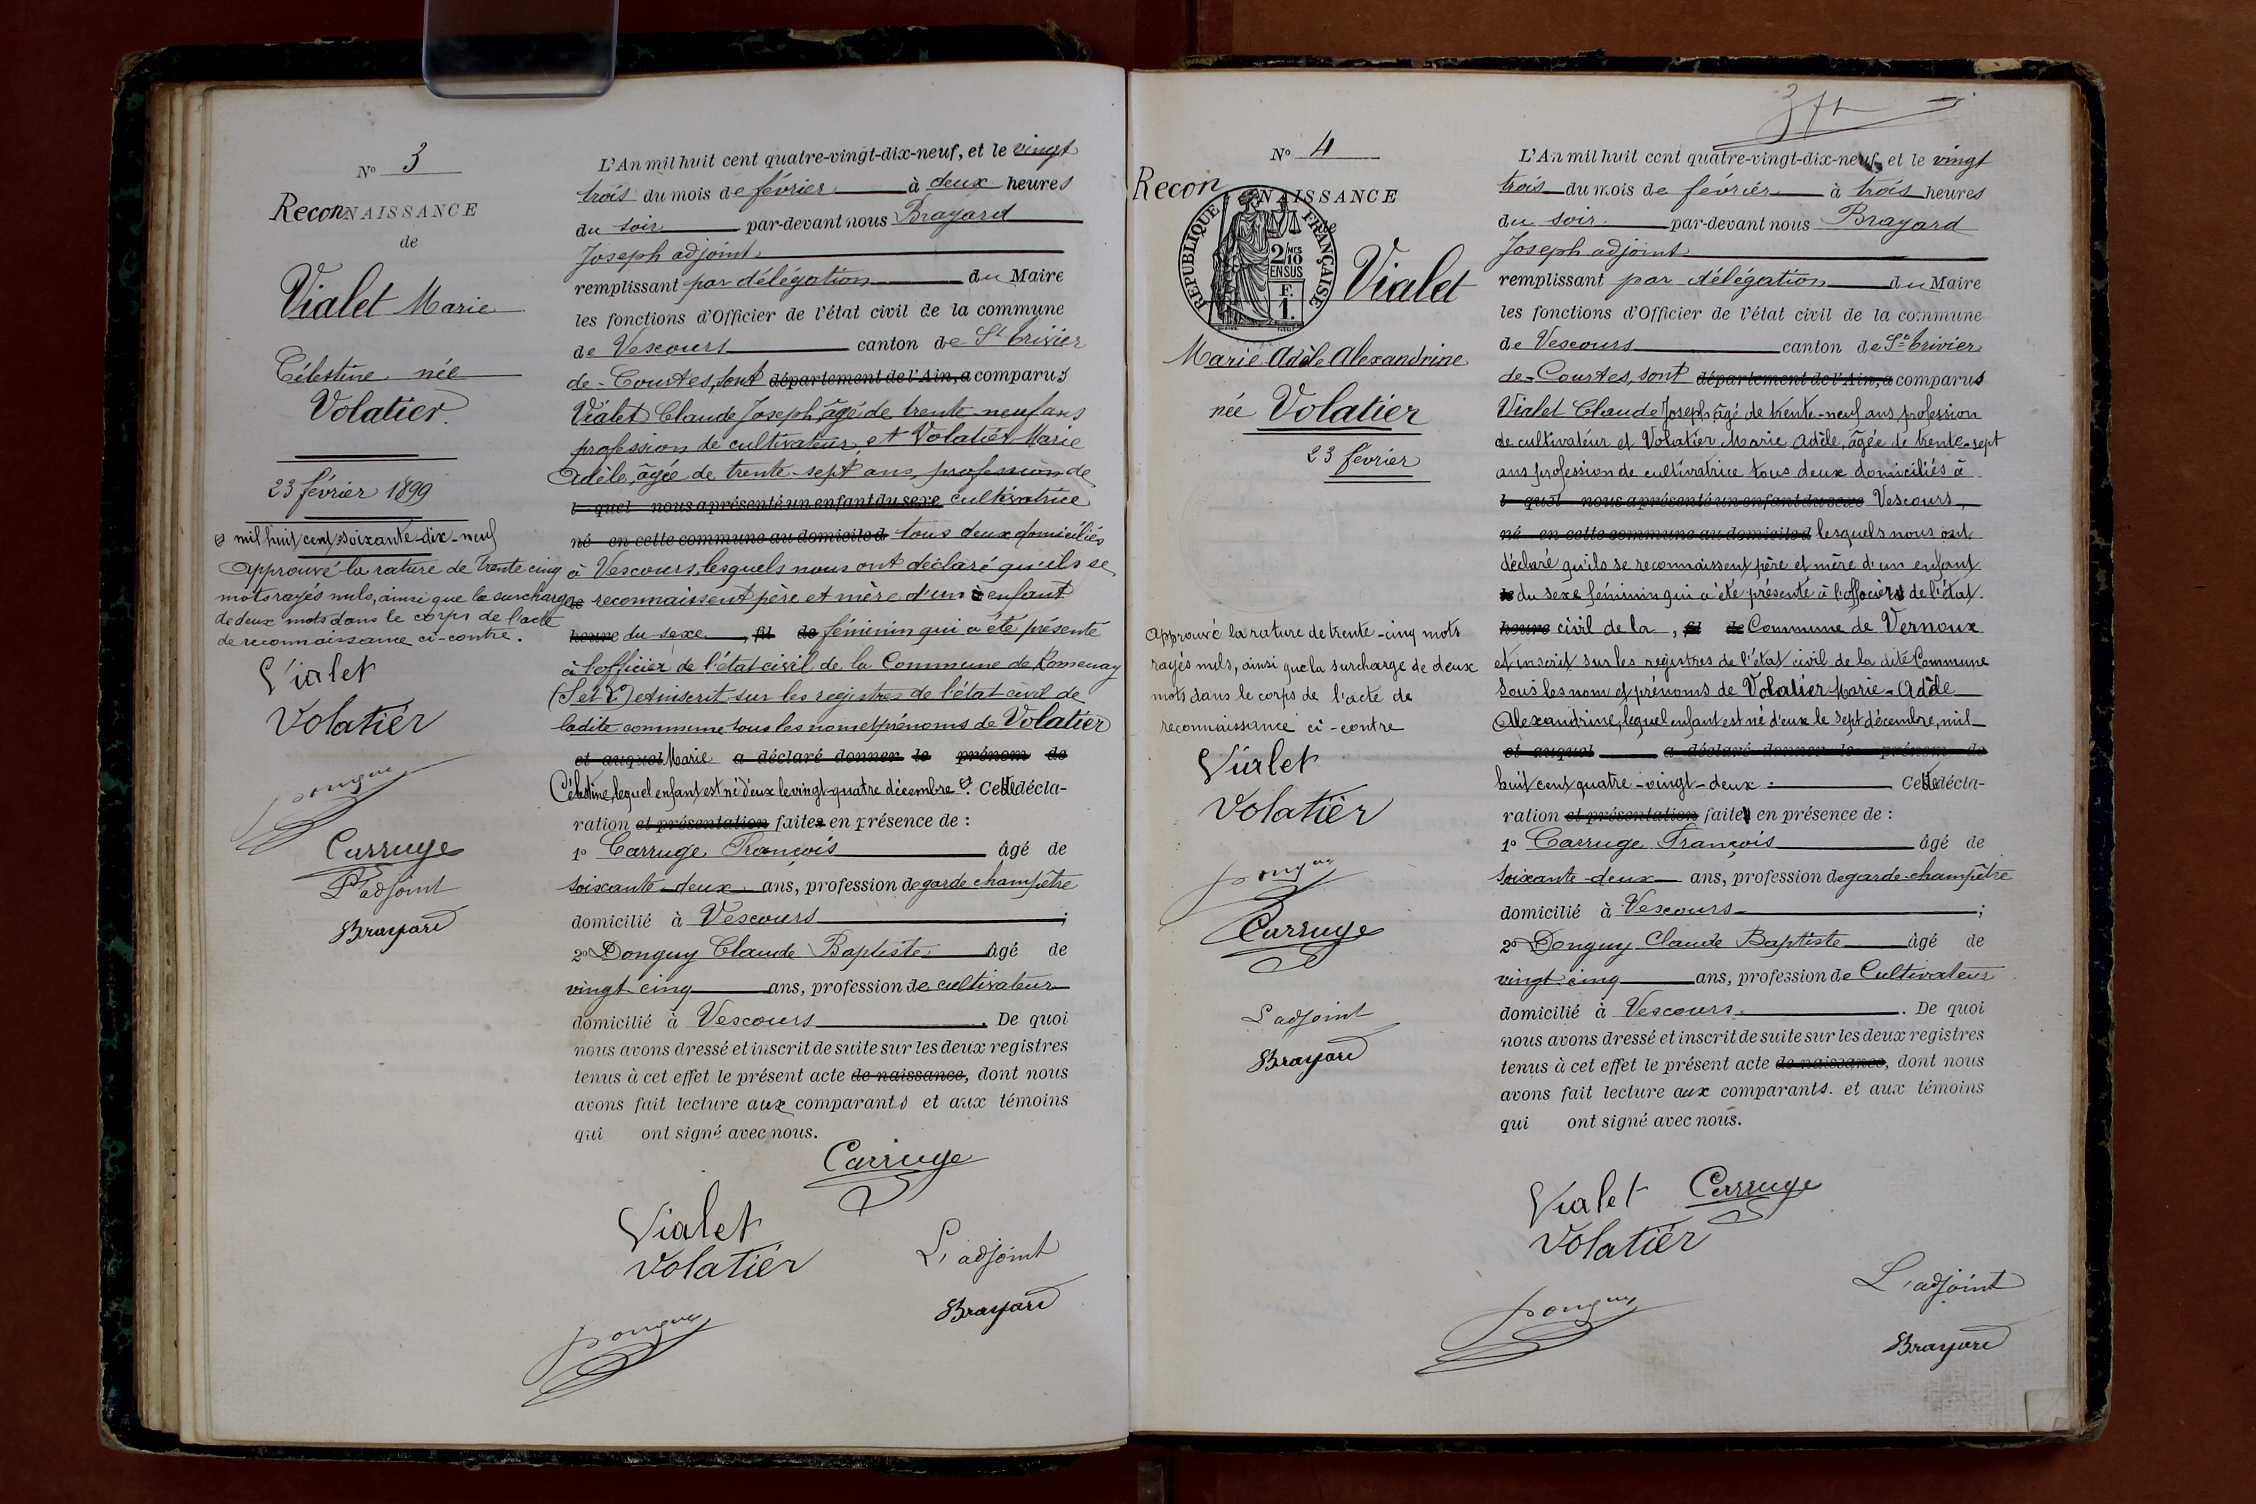 Nº 3
ReconNAISSANCE
de
Vialet Marie
Célestine née
Volatier.
23 février 1899
mil huit cent soixante-dix-neuf
Approuvé la rature de trente cinq
mots rayés nuls, ainsi que la surcharge
de deux mots dans le corps de l'acte
de reconnaissance ci-contre.
Vialet
Volatier
Donguy
Carruge
L'adjoint
Brayard
L'An mil huit cent quatre-vingt-dix-neuf, et le vingt
trois du mois de février à deux heures
du soir par-devant nous Brayard
Joseph adjoint
remplissant par délégation du Maire
les fonctions d'Officier de l'état civil de la commune
de Vescours canton de St trivier
de-Courtes, sont département de l'Ain, a comparus
Vialet Claude Joseph, âgé de trente-neuf ans
profession de cultivateur, et Volatier Marie
Adèle, âgée de trente-sept ans, profession de
l quel nous a présenté un enfant du sexe cultivatrice
né en cette commune au domicile d tous deux domiciliés
à Vescours, lesquels nous ont déclaré qu'ils se
le reconnaissent père et mère d'un à enfant
heure du sexe , fil de féminin qui a été présenté
à l'officier de l'état civil de la Commune de Romenay
(S et L) et inscrit sur les registres de l'état civil de
ladite commune sous les nom et prénoms de Volatier
et auquel Marie a déclaré donner le prénom de
Célestine, lequel enfant est né d'eux le vingt-quatre décembre. Cette décla-
ration et présentation faites en présence de :
1º Carruge François âgé de
soixante-deux ans, profession de garde champêtre
domicilié à Vescours ;
2º Donguy Claude Baptiste âgé de
vingt cinq ans, profession de cultivateur
domicilié à Vescours. De quoi
nous avons dressé et inscrit de suite sur les deux registres
tenus à cet effet le présent acte de naissance, dont nous
avons fait lecture aux comparants et aux témoins
qui ont signé avec nous.
Carruge
Vialet
Volatier
L'adjoint
Brayard
Donguy
Nº 4
ReconNAISSANCE
REPUBLIQUE FRANÇAISE
2 MES
10
EN SUS
F.
1.
de
Vialet
Marie Adèle Alexandrine
née Volatier
23 février
Approuvé la rature de trente-cinq mots
rayés nuls, ainsi que la surcharge de deux
mots dans le corps de l'acte de
reconnaissance ci-contre
Vialet
Volatier
Donguy
Carruge
L'adjoint
Brayard
L'An mil huit cent quatre-vingt-dix-neuf, et le vingt
trois du mois de février à trois heures
du soir par-devant nous Brayard
Joseph adjoint
remplissant par délégation du Maire
les fonctions d'Officier de l'état civil de la commune
de Vescours canton de St trivier
de-Courtes, sont département de l'Ain, a comparus
Vialet Claude Joseph, âgé de trente-neuf ans, profession
de cultivateur et Volatier Marie Adèle, âgée de trente-sept
ans profession de cultivatrice tous deux domiciliés à
l quel nous a présenté un enfant du sexe Vescours,
né en cette commune au domicile d lesquels nous ont
déclaré qu'ils se reconnaissent père et mère d'un enfant
le du sexe féminin qui a été présenté à l'officier de l'état
heure civil de la , fil de Commune de Vernoux
et inscrit sur les registres de l'état civil de la dite Commune
sous les nom et prénoms de Volatier Marie-Adèle
Alexandrine, lequel enfant est né d'eux le sept décembre, mil
et auquel a déclaré donner le prénom de
huit cent quatre-vingt-deux : Cette décla-
ration et présentation faite en présence de :
1º Carruge François âgé de
soixante-deux ans, profession de garde-champêtre
domicilié à Vescours ;
2º Donguy Claude Baptiste âgé de
vingt-cinq ans, profession de Cultivateur
domicilié à Vescours. De quoi
nous avons dressé et inscrit de suite sur les deux registres
tenus à cet effet le présent acte de naissance, dont nous
avons fait lecture aux comparants. et aux témoins
qui ont signé avec nous.
Vialet Carruge
Volatier
L'adjoint
Donguy
Brayard